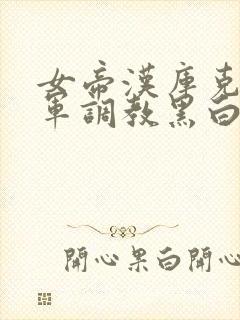 女帝漢庫克
軍調教黑白
開心果白開心